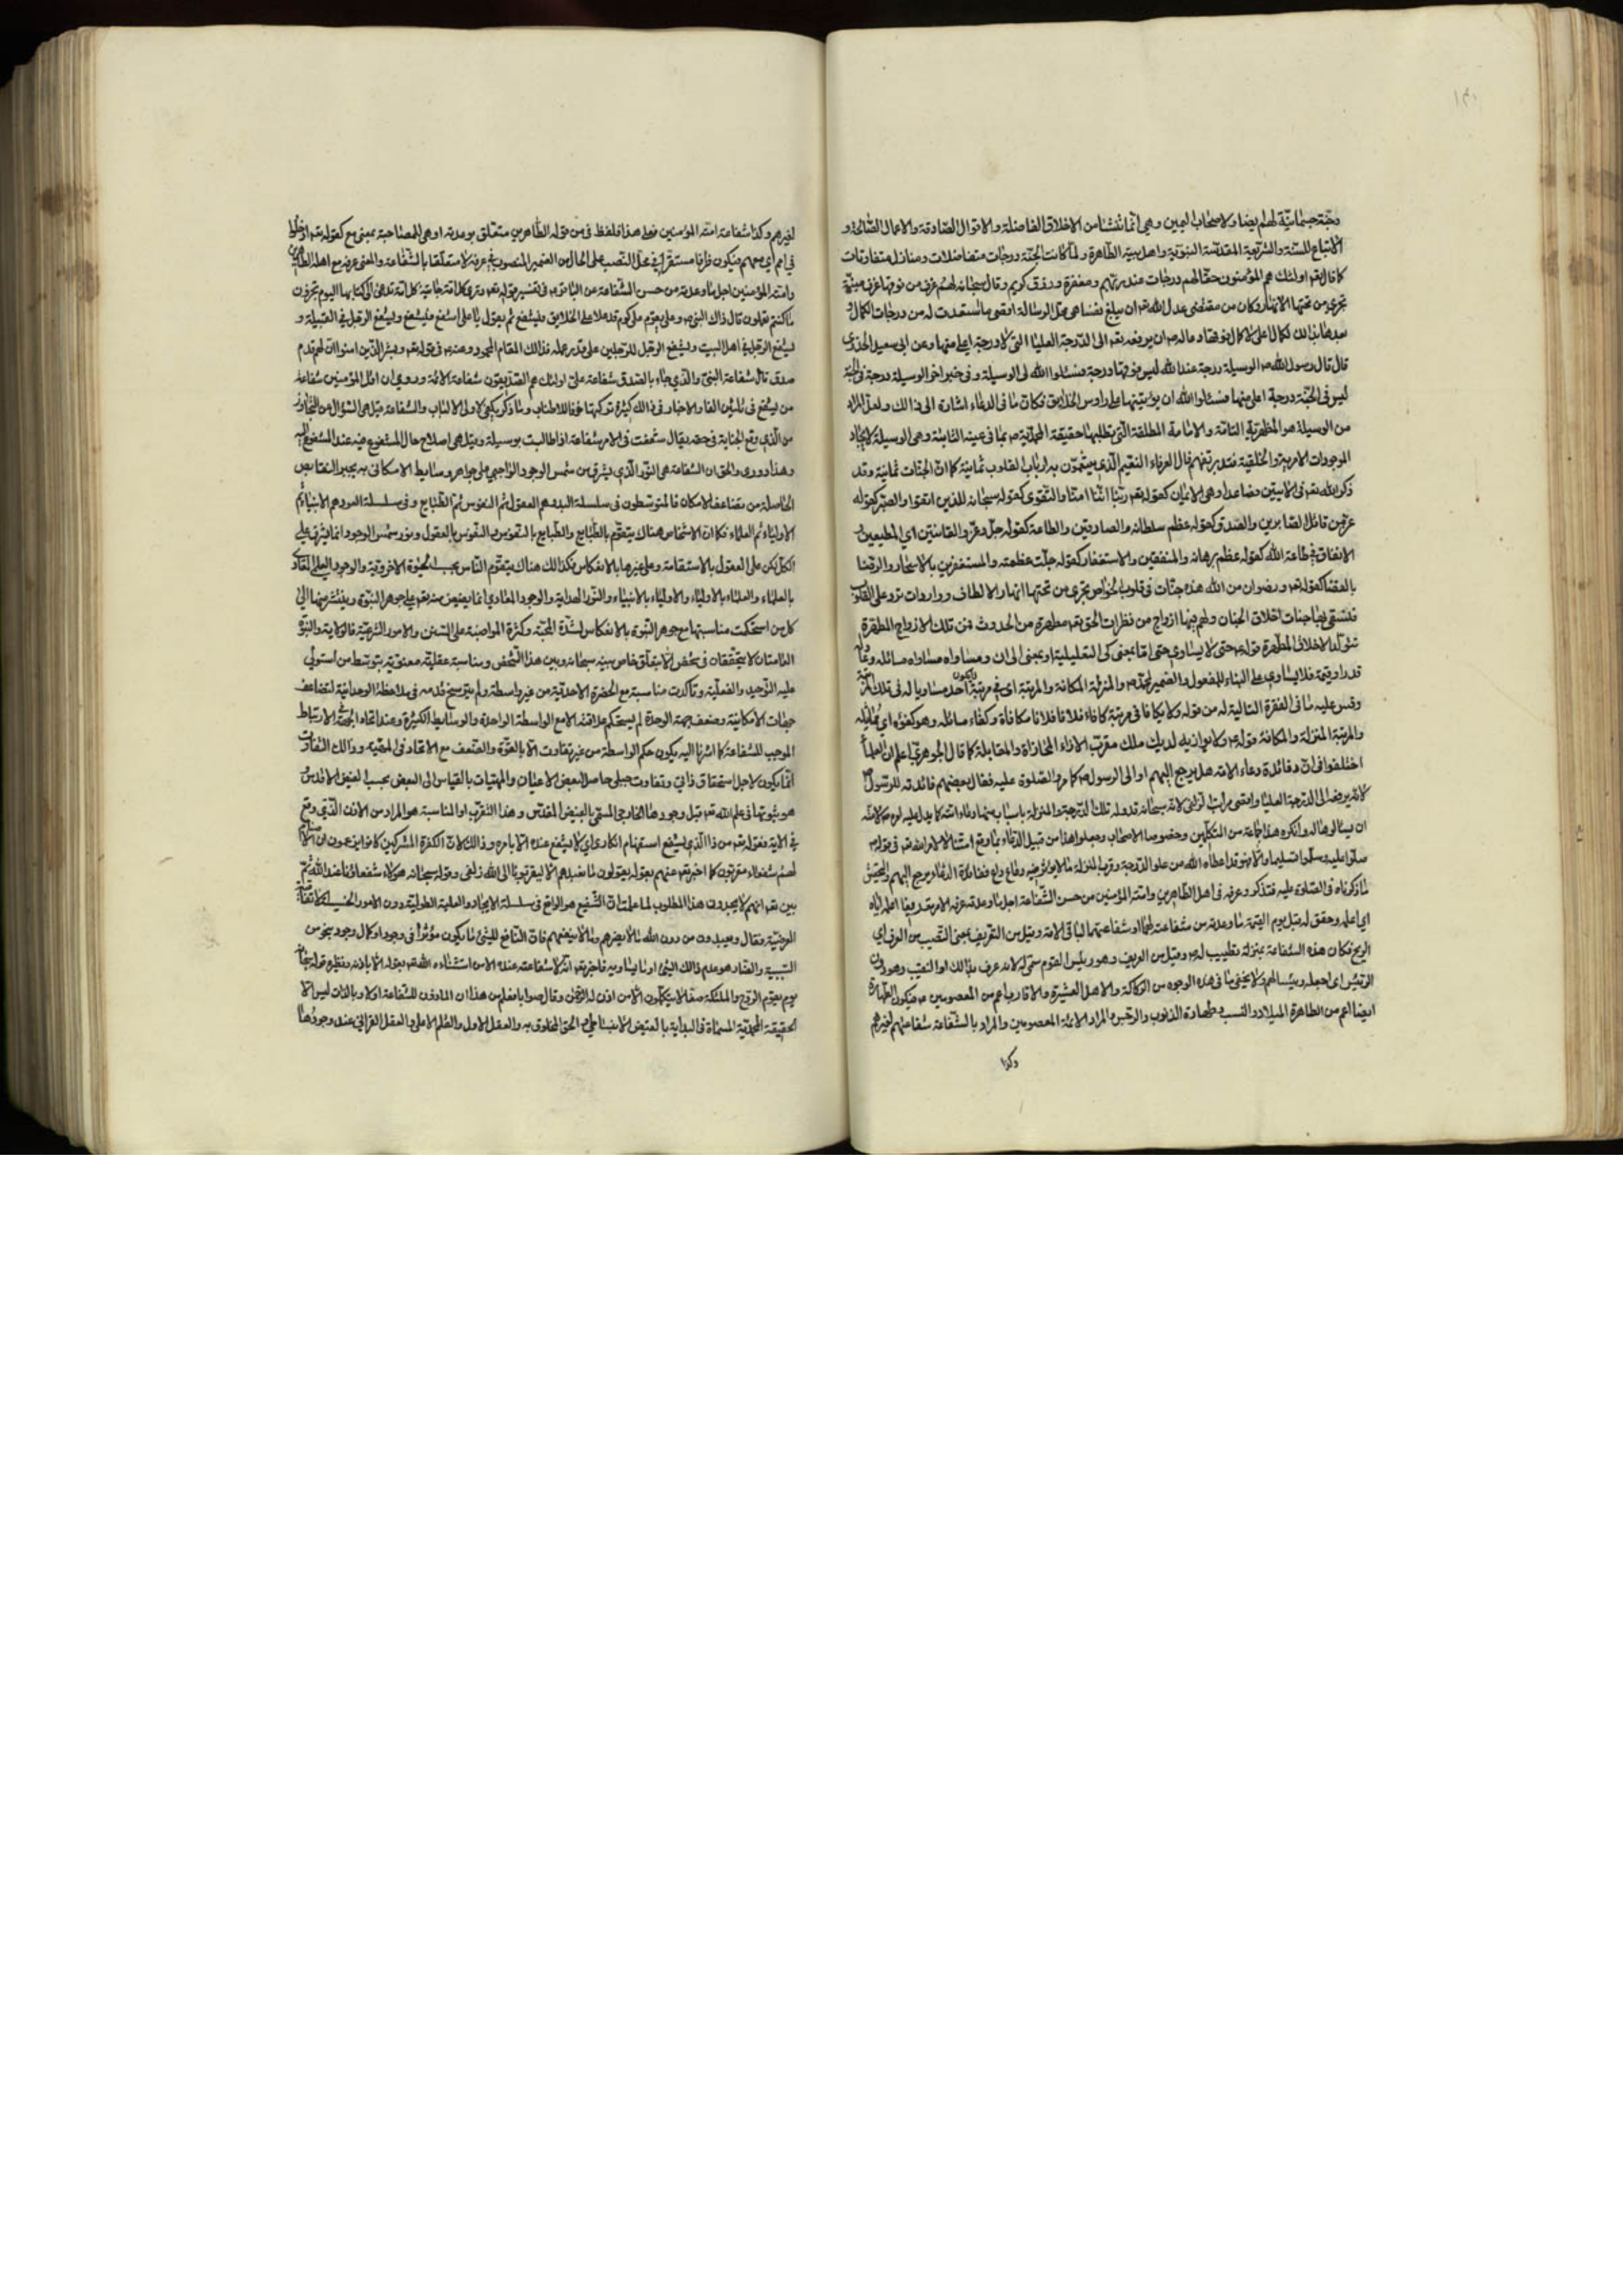 وجنة جسمانية لهم ايضا ولاصحاب اليمين وهي انما تنشا من الاخلاق الفاضلة والاقوال الصادقة والاعمال الصالحة و
الاتباع للسنة والشريعة المقدسة النبوية واهل بيته الطاهرة ولما كانت الجنة درجات متفاضلات ومنازل متفاوتات
كما قال تعم اولئك هم المؤمنون حقا لهم درجات عند ربهم ومغفرة ورزق كريم وقال سبحانه لهم غرف من فوقها غرف مبنية
تجري من تحتها الانهار وكان من مقتضى عدل الله تعم ان يبلغ
الى الدرجة العليا التي لا درجة اعلى منها وعن ابي سعيد الخدري
قال قال رسول الله ص الوسيلة درجة عند الله ليس فوقها درجة فسئلوا الله لي الوسيلة وفي خبر اخر الوسيلة درجة في الجنة
ليس في الجنة درجة اعلى منها فسئلوا الله ان يؤتينيها على رؤس الخلايق فكان ما في الدعاء اشارة الى ذالك ولعل المراد
من الوسيلة هو المظهرية التامة والامامة المطلقة التي تطلبها حقيقة المحمدية ص
الموجودات الامرية والخلقية قال العرفاء النعيم الذي يتنعمون به ارباب القلوب ثمانية كما ان الجنات ثمانية وقد
ذكر الله تعم في الايتين وهي الايمان كقوله تعم ربنا اننا امنا والتقوى كقوله سبحانه للذين اتقوا والصبر كقوله
عز من قائل الصابرين والصدق كقوله عظم سلطانه والصادقين والطاعة كقوله جل وعز والقانتين اي المطيعين و
الانفاق في طاعة الله كقوله عظم برهانه والمنفقين والاستغفار كقوله جلت عظمته والمستغفرين بالاسحار والرضا
بالقضا كقوله تعم ورضوان من الله هذه جنات في قلوب الخواص تجري من تحتها انهار الالطاف وواردات ترد على القلوب
ولهم فيها ازواج من نظرات الحق تعم مطهرة من الحدوث فمن تلك الازواج المطهرة
تتولد الاخلاق المطهرة قوله ع حتى لا يساوي حتى اما بمعنى كي التعليلية او بمعنى الى ان وساواه مساواة ماثله
قدرا وقيمة فلا يساوي على البناء للمفعول والضمير لمحمد ص والمنزلة المكانة والمرتبة اي في مرتبة احد مساويا له في تلك
وقس عليه ما في الفقرة التالية له من قوله ولا يكافا في مرتبة كافاء فلانا مكافاة وكفاء ماثله وهو كفؤه اي مماثله
والمرتبة المنزلة والمكانة قوله ع ولا يوازيه لديك ملك مقرب الازاء المحاذاة والمقابلة كما قال الجوهري اعلم ان العلماء
اختلفوا في ان فائدة دعاء الامة هل يرجع اليهم او الى الرسول ص كما مر في الصلوة عليه فقال بعضهم فائدته للرسول
ان يسالوها له وانكره هذا جماعة من المتكلمين وخصوصا الاصحاب وجعلوا هذا من قبيل الدعاء بما وقع امتثالا لامر الله تعم في قوله
صلوا عليه وسلموا تسليما والا فهو قد اعطاه الله من علو الدرجة وقرب المنزلة ما لا يؤثر فيه دعاء داع ففائدة الدعاء يرجع اليهم والتحقيق
ما ذكرناه في الصلوة عليه فتذكر وعرفه في اهله الطاهرين وامته المؤمنين من حسن الشفاعة اجل ما وعدته
الريح فكان هذه الشفاعة بمنزلة تطييب له وقيل من العريف وهو رئيس القوم سمي به لانه عرف بذالك او النقيب وهو دون
الرئيس اي اجعله رئيسا لهم ولا يخفى ما في هذه الوجوه من الركاكة والاهل العشيرة والاقارب اعم من المعصومين
ايضا اعم من الطاهرة الميلاد والنسب وطهارة الذنوب والرجس والمراد الائمة المعصومين والمراد بالشفاعة شفاعتهم لغيرهم
وكذا
لغيرهم وكذا شفاعة امته المؤمنين فعلى هذا فلفظ في من قوله الطاهرين متعلق بوعدته او هي للمصاحبة بمعنى مع كقوله تعم ادخلوا
في امم اي معهم فيكون ظرفا مستقرا في محل النصب على الحال من الضمير المنصوب في عرفه لا متعلقا بالشفاعة والمعنى عرفه مع اهله الطاهرين
وامته المؤمنين اجل ما وعدته من حسن الشفاعة عن الباقر ع في تفسير قوله تعم وترى كل امة جاثية كل امة تدعى الى كتابها اليوم تجزون
ما كنتم تعملون قال ذاك النبي ص وعلي يقوم على كوم قد علا على الخلايق فيشفع ثم يقول يا علي اشفع فيشفع ويشفع الرجل في القبيلة و
يشفع الرجل في اهل البيت ويشفع الرجل للرجلين على قدر عمله فذالك المقام المحمود وعنه ع في قوله تعم وبشر الذين امنوا ان لهم قدم
صدق قال شفاعة النبي والذي جاء بالصدق شفاعة علي اولئك هم الصديقون شفاعة الائمة وروي ان اقل المؤمنين شفاعة
من يشفع في ثلثين الفا والاخبار في ذالك كثيرة تركتها خوفا للاطناب وما ذكر يكفي لاولي الالباب والشفاعة قيل هي السؤال من التجاوز
من الذي وقع الجناية في حقه يقال شفعت في الامر شفاعة اذا طالبت بوسيلة وقيل هي اصلاح حال المشفوع فيه عند المشفوع اليه
وهذا دوري والحق ان الشفاعة هي النور الذي يشرق من شمس الوجود الواجبي على جواهر وسايط الامكاني به يجبر النقايص
الحاصلة من تضاعف الامكان فالمتوسطون في سلسلة البدء هم العقول ثم النفوس ثم الطبايع وفي سلسلة العود هم الانبياء ثم
الاولياء ثم العلماء فكما ان الاشخاص هناك يتقوم بالطبايع والطبايع بالنفوس والنفوس بالعقول ونور شمس الوجود انما يشرق على
الكل لكن على العقول بالاستقامة وعلى غيرها بالانعكاس فكذالك هناك يتقوم الناس بحسب الحيوة الاخروية والوجود العلمي المعادي
بالعلماء والعلماء بالاولياء والاولياء بالانبياء والنور الهداية والوجود المعادي انما يفيض منه تعم على جوهر النبوة وينتشر منها الى
كل من استحكمت مناسبتها مع جوهر النبوة بالانعكاس لشدة المحبة وكثرة المواصبة على السنن والامور الشرعية فالولاية والنبوة
العامتان لا يتحققان في شخص الا بتعلق خاص بينه سبحانه وبين هذا الشخص ومناسبة عقلية معنوية بتوسط من استولى
عليه التوحيد والفعلية وتاكدت مناسبة مع الحضرة الاحدية من غير واسطة ولم يترسخ قدمه في ملاحظة الوحدانية لتضاعف
جهات الامكانية وضعف جهة الوحدة لم يستحكم علاقته الا مع الواسطة الواحدة والوسايط الكثيرة وعند اتحاد الجهة الارتباط
الموجب للشفاعة كما اشرنا اليه يكون حكم الواسطة من غير تفاوت الا بالقوة والضعف مع الاتحاد في الحقيقة وذالك التفاوت
انما يكون لاجل استحقاق ذاتي وتفاوت جبلي حاصل لبعض الاعيان والمهيات بالقياس الى البعض بحسب الفيض الاقدس
هو ثبوتها في علم الله تعم قبل وجودها الخارجي المسمى بالفيض المقدس وهذا التقرب او المناسبة هو المراد من الاذن الذي وقع
في الاية فقوله تعم من ذا الذي يشفع استفهام انكاري اي لا يشفع عنده الا بامره وذالك لان الكفرة المشركين كانوا يزعمون ان الاصنام
لهم شفعاء مقربون كما اخبر تعم عنهم بقوله يقولون ما نعبدهم الا ليقربونا الى الله زلفى وقوله سبحانه هؤلاء شفعاؤنا عند الله ثم
بين تعم انهم لا يجدون هذا المطلوب لما علمت ان الشفيع هو الواقع في سلسلة الايجاد والعلية الطولية دون الامور الخسيسة
العرضية فقال ويعبدون من دون الله ما لا يضرهم وما لا ينفعهم فان النافع للشئ ما يكون مؤثرا في وجوده او كمال وجوده بنحو من
السببية والضار هو عدم ذالك الشئ او ما يساوقه فاخبر تعم انه لا شفاعة عنده الا من استثناه الله تعم بقوله الا باذنه ونظيره قوله سبحانه
يوم يقوم الروح والملئكة صفا لا يتكلمون الا من اذن له الرحمن وقال صوابا فعلم من هذا ان الماذون للشفاعة اولا وبالذات ليس الا
الحقيقة المحمدية المسماة في البداية بالفيض الانبساطي والحق المخلوق به والعقل الاول والقلم الاعلى والعقل القرآني عند وجودها